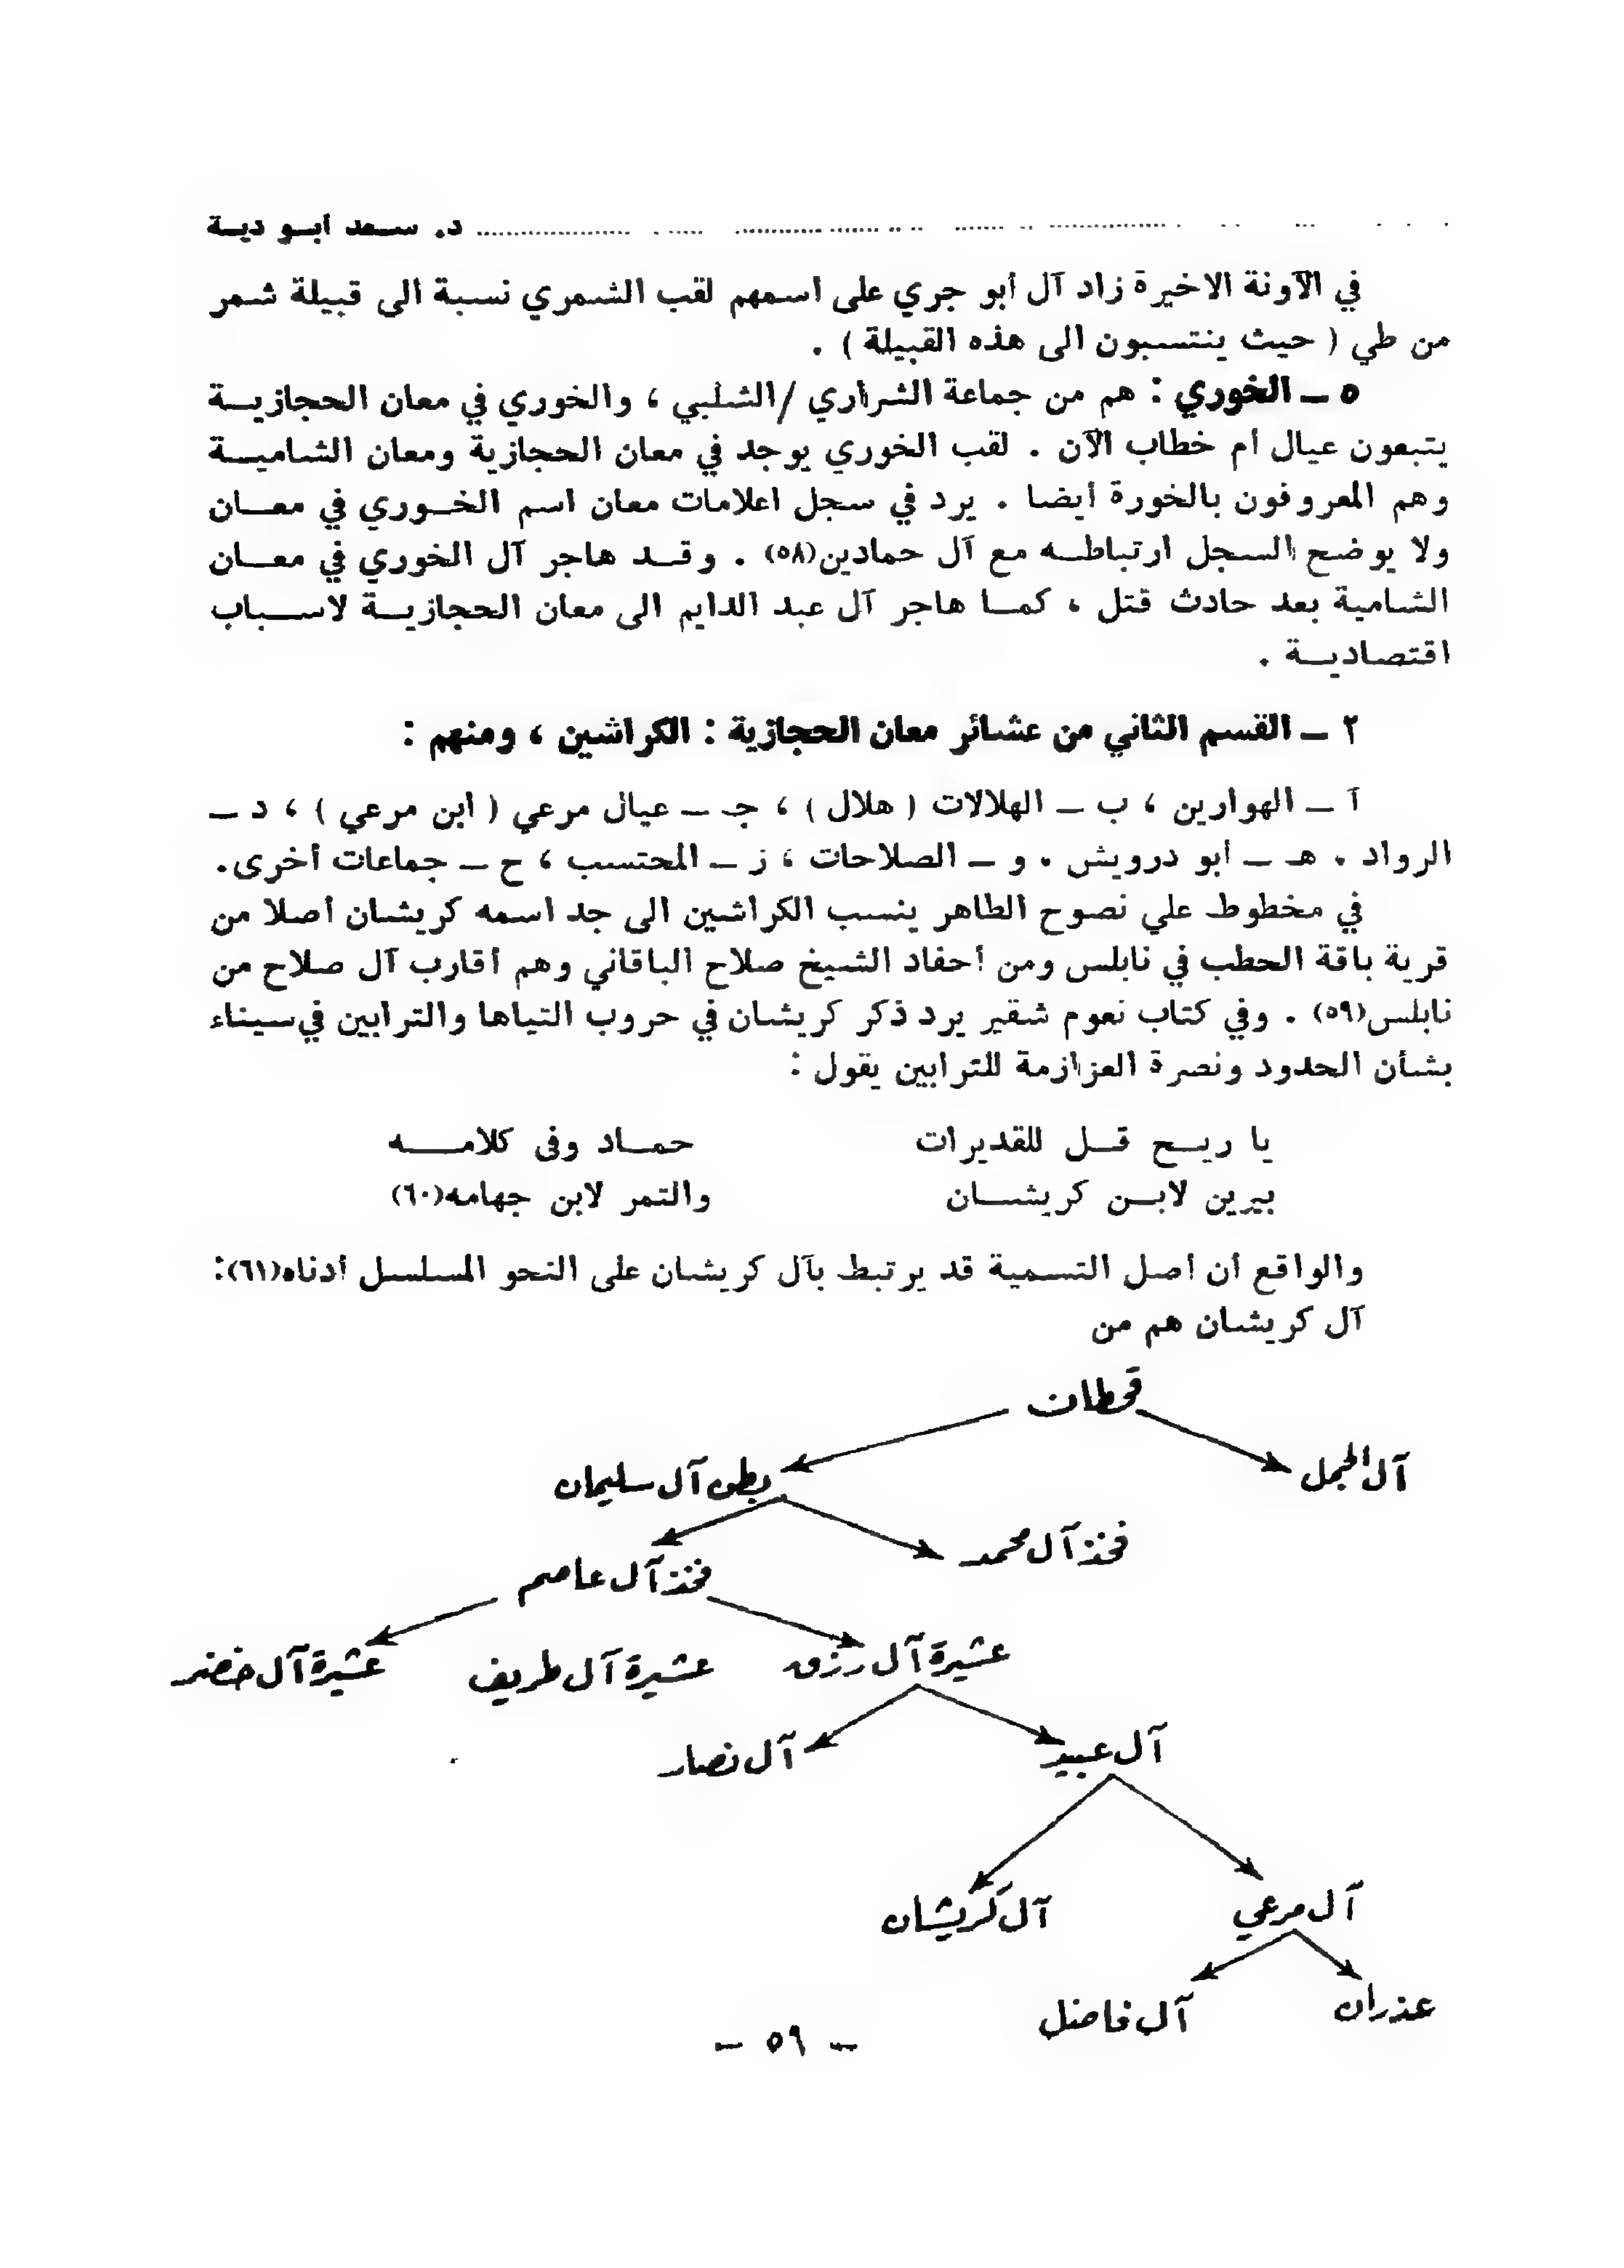 د. سعد أبو دية
في الآونة الاخيرة زاد آل أبو جري على اسمهم لقب الشمري نسبة الى قبيلة شمر
من طي ( حيث ينتسبون الى هذه القبيلة ) .
٥ ــ الخوري : هم من جماعة الشراري /الشلبي ، والخوري في معان الحجازية
يتبعون عيال أم خطاب الآن . لقب الخوري يوجد في معان الحجازية ومعان الشامية
وهم المعروفون بالخورة أيضا . يرد في سجل اعلامات معان اسم الخوري في معان
ولا يوضح السجل ارتباطه مع آل حمادين(٥٨) . وقد هاجر آل الخوري في معان
الشامية بعد حادث قتل ، كما هاجر آل عبد الدايم الى معان الحجازية لاسباب
اقتصادية .
٢ ــ القسم الثاني من عشائر معان الحجازية : الكراشين ، ومنهم :
آ ــ الهوارين ، ب ــ الهلالات ( هلال ) ، جـ ــ عيال مرعي ( ابن مرعي ) ، د ــ
الرواد . هـ ــ أبو درويش . و ــ الصلاحات ، ز ــ المحتسب ، ح ــ جماعات أخرى.
في مخطوط علي نصوح الطاهر ينسب الكراشين الى جد اسمه كريشان أصلا من
قرية باقة الحطب في نابلس ومن أحفاد الشيخ صلاح الباقاني وهم أقارب آل صلاح من
نابلس(٥٩) . وفي كتاب نعوم شقير يرد ذكر كريشان في حروب التياها والترابين في سيناء
بشأن الحدود ونصرة العزازمة للترابين يقول :
يا ريح قل للقديرات حماد وفى كلامه
بيرين لابن كريشان والتمر لابن جهامه(٦٠)
والواقع أن أصل التسمية قد يرتبط بآل كريشان على النحو المسلسل أدناه(٦١):
آل كريشان هم من
قحطان
آل الجمل بطن آل سليمان
فخذ آل محمد فخذ آل عاصم
عشيرة آل رزق عشيرة آل طريف عشيرة آل خضر
آل عبيد آل نصار
آل مرعي آل كريشان
عذران آل فاضل
ــ ٥٩ ــ